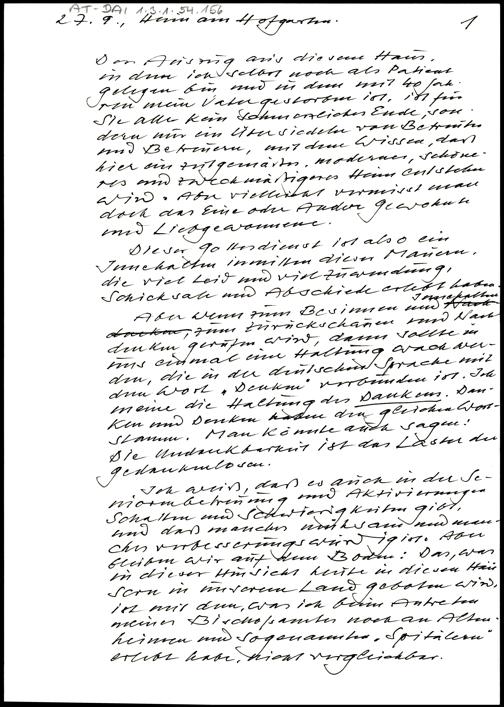 AT-DAI 1-3-1-54-156
27. 9., Heim am Hofgarten.
1
Der Auszug aus diesem Haus,
in dem ich selbst noch als Patient
gelegen bin und in dem mit 40 Jah-
ren mein Vater gestorben ist, ist für
Sie alle kein schmerzliches Ende, son-
dern nur ein Übersiedeln von Betreuten
und Betreuern, mit dem Wissen, daß
hier ein zeitgemäßes, modernes, schöne-
res und zweckmäßigeres Heim entstehen
wird. Aber vielleicht vermisst man
doch das Eine oder Andere Gewohnte
und Liebgewonnene.
Dieser Gottesdienst ist also ein
Innehalten inmitten dieser Mauern,
die viel Leid und viel Zuwendung,
Schicksale und Abschiede erlebt haben.
Aber wenn zum Besinnen und Innehalten
zum Zurückschauen und Nach
denken gerufen wird, dann sollte in
uns einmal eine Haltung wach wer-
den, die in der deutschen Sprache mit
dem Wort „Denken" verbunden ist. Ich
meine die Haltung des Dankens. Dan-
ken und Denken haben den gleichen Wort-
stamm. Man könnte auch sagen:
Die Undankbarkeit ist das Laster der
Gedankenlosen.
Ich weiß, daß es auch in der Se-
niorenbetreuung und Aktivierungen
Schatten und Schwierigkeiten gibt,
und daß manches mühsam und man-
ches verbesserungswürdig ist. Aber
bleiben wir auf dem Boden: Das, was
in dieser Hinsicht heute in diesen Häu
sern in unserem Land geboten wird,
ist mit dem, was ich beim Antreten
meines Bischofsamtes noch an Alten-
heimen und sogenannten „Spitälern"
erlebt habe, nicht vergleichbar.